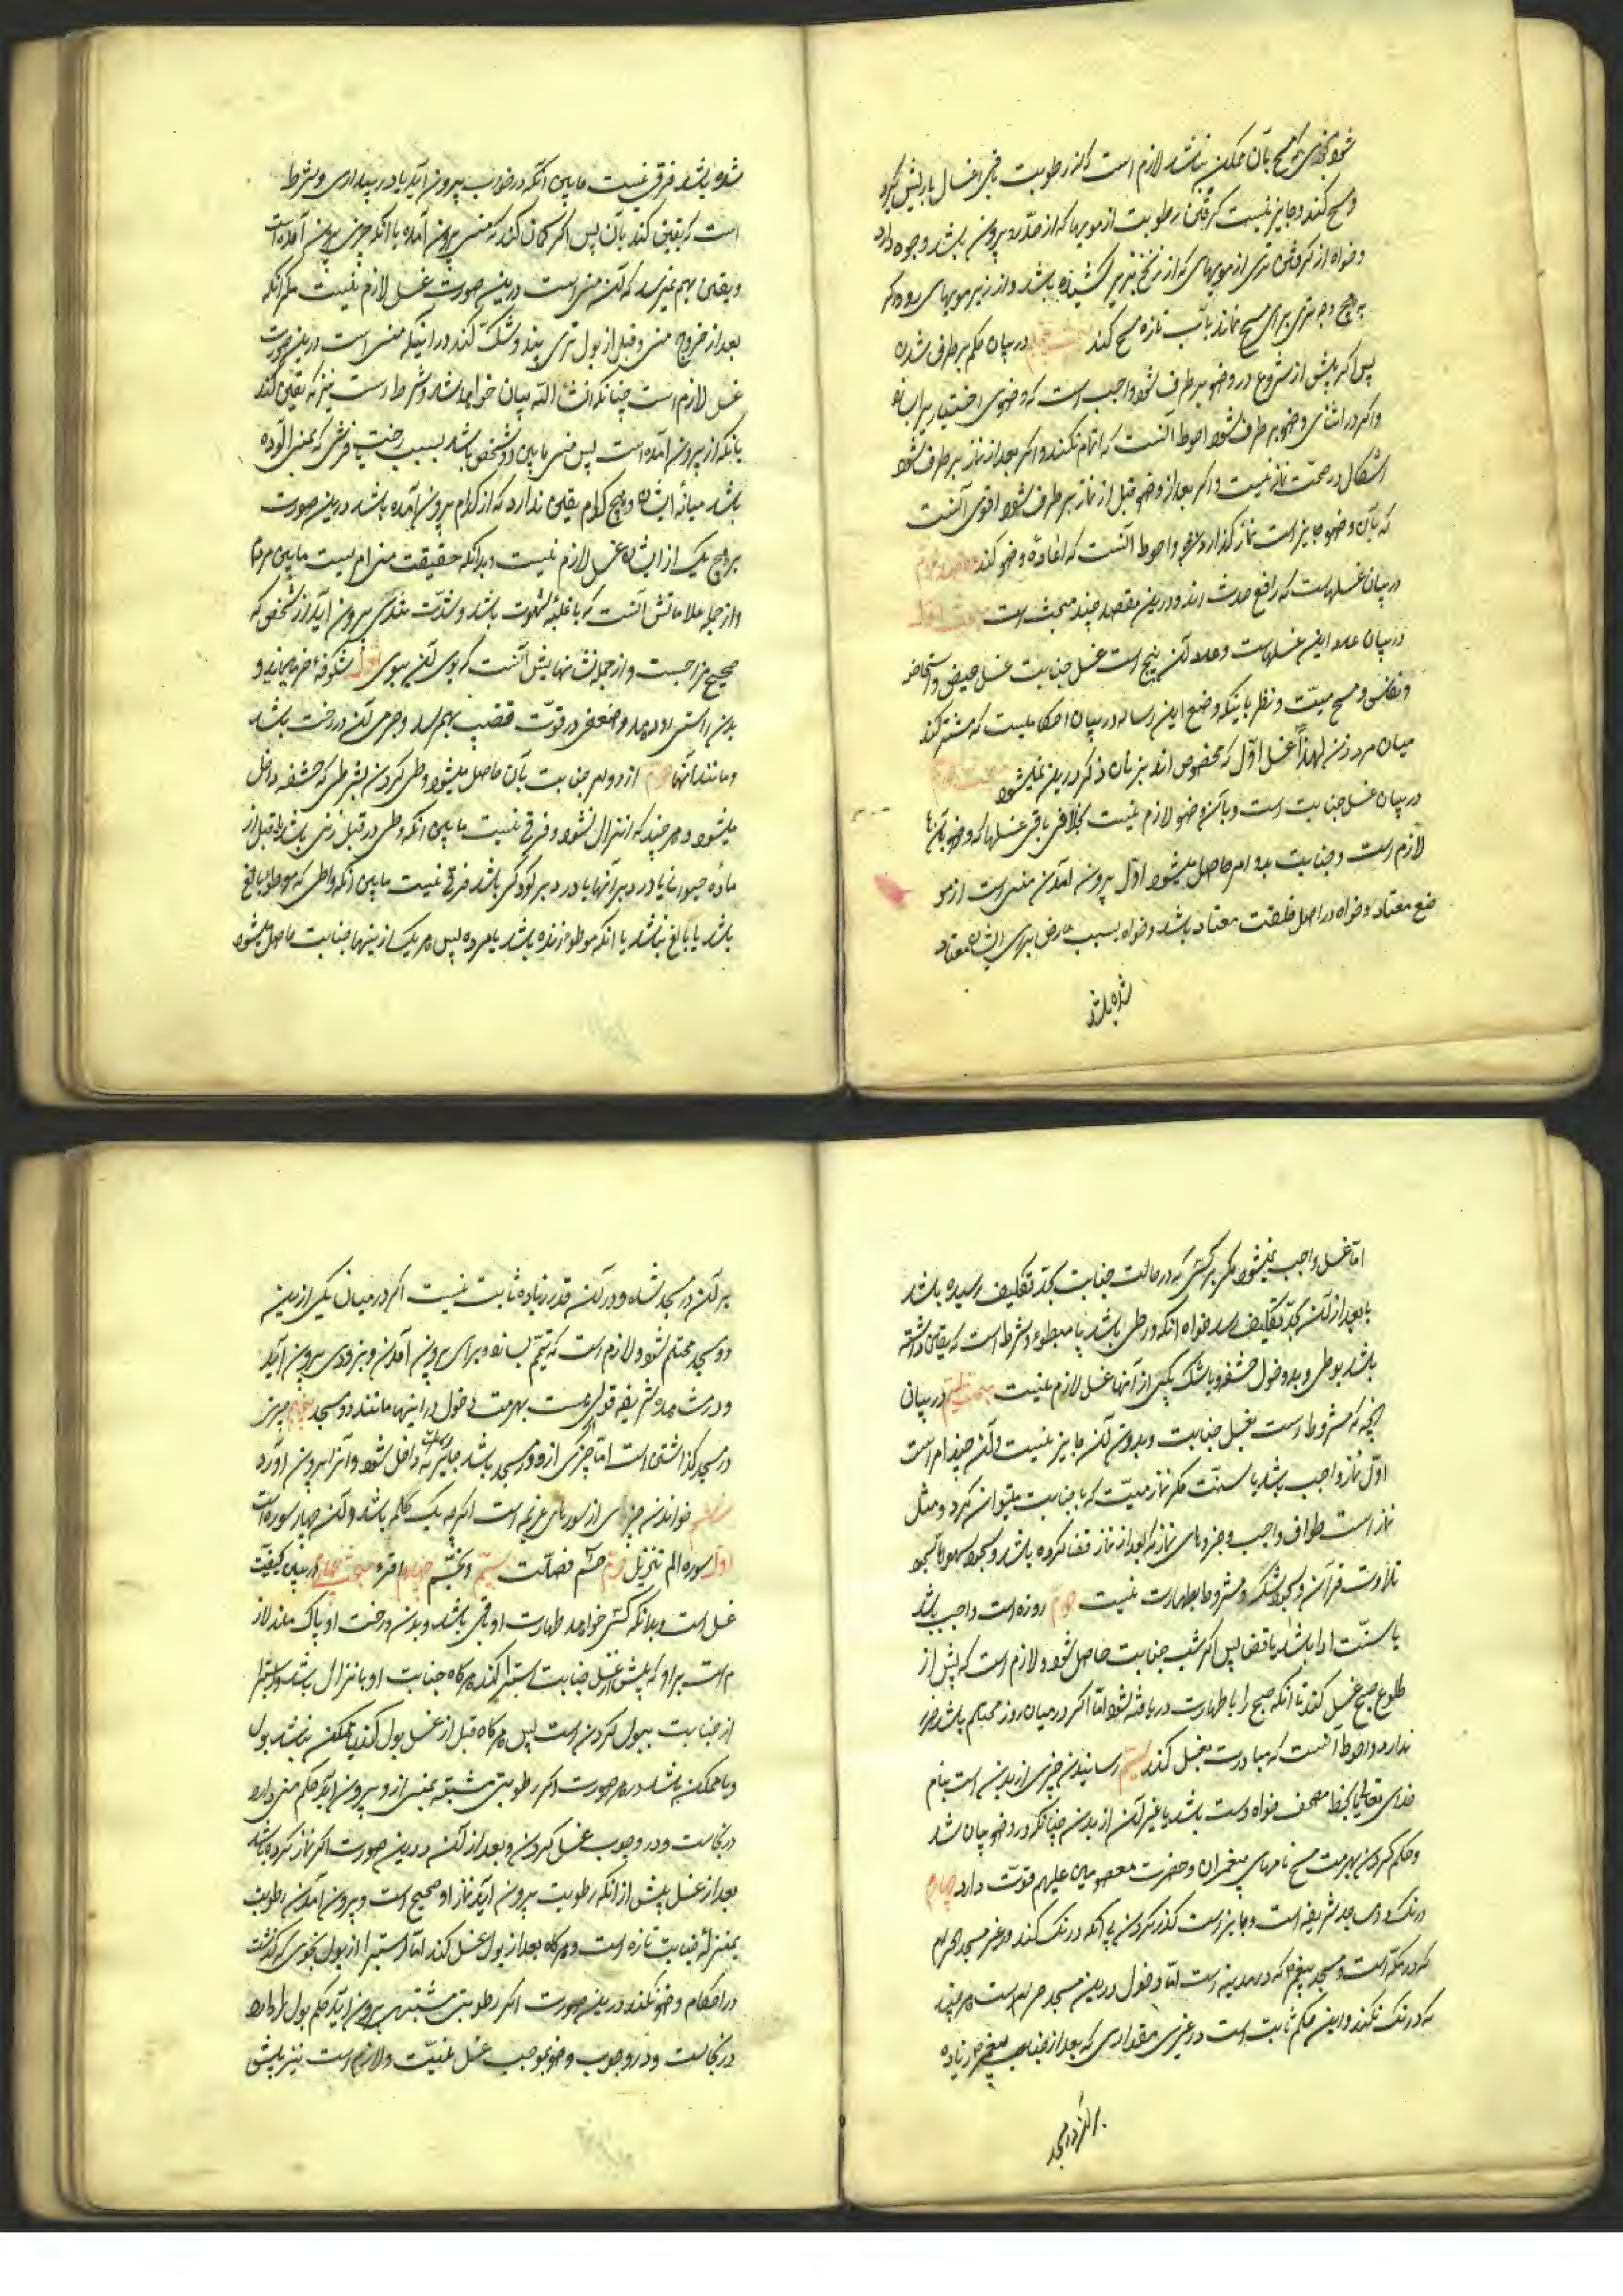 شود بنحوی که مسح بآن ممکن نباشد لازم است که از رطوبت باقی اغسال یا ریش گیرد
و مسح کند و جایز نیست گرفتن رطوبت از مویها که از حد رو بیرون باشد
و خواه از گرفتن تری از مویهای که از زنخ بزیر کشیده باشد و از زیر مویهای رو و اگر
بهیچ وجه تری برای مسح نماند بآب تازه مسح کند در بیان حکم برطرف شدن
پس اگر پیش از شروع در وضو برطرف شود واجب است که وضوی اختیار
و اگر در اثنای وضو برطرف شود احوط آنست که اتمام نکند و اگر بعد از نماز برطرف شود
اشکال در صحت نماز نیست و اگر بعد از وضو قبل از نماز برطرف شود اقوی آنست
که بآن وضو جایز است نماز گذاردن و احوط آنست که اعاده وضو کند مقصد دوم
در بیان غسلهاست که رافع حدث اند و درین مقصد چند مبحث است مبحث اول
در بیان عدد این غسلهاست و عدد آن پنج است غسل جنابت غسل حیض و استحاضه
و نفاس و مسح میت و نظر باینکه وضع این رساله در بیان احکامیست که مشترکند
میان مرد و زن لهذا غسل اول که مخصوص اند بزنان ذکر درین نمیشود مبحث دوم
در بیان غسل جنابت است و بآن وضو لازم نیست بخلاف باقی غسلها که وضو بآنها
لازم است و جنابت بدو امر حاصل میشود اول بیرون آمدن منی است از مو
ضع معتاد و خواه در اصل خلقت معتاد باشد و خواه بسبب عارض برای ایشان معتاد
شده باشد
شده باشد فرقی نیست مابین آنکه در خواب بیرون آید یا در بیداری و شرط
است که یقین کند بآن پس اگر گمان کند که منی بیرون آمده یا آنکه چیزی بیرون آمده است
و یقین بهم نمیرسد که آن منی است درین صورت غسل لازم نیست مگر آنکه
بعد از خروج منی و قبل از بول تری بیند و شک کند در اینکه منی است درین صورت
غسل لازم است چنانکه انشاء الله بیان خواهد شد و شرط است نیز که یقین کند
بانکه از او بیرون آمده است پس منی مابین دو شخص باشد بسبب رخت یا فرشی که بمنی آلوده
باشد میانه ایشان و هیچ کدام یقین ندارد که از کدام بیرون آمده باشد درین صورت
بر هیچ یک از ایشان غسل لازم نیست و بدانکه حقیقت منی امریست مابین مردم
و از جمله علاماتش آنست که با غلبه شهوت باشد و شدت و تندی بیرون آید از شخصی که
صحیح مزاجست و از جمله نشانهایش آنست که بوی آن ببوی اول شکوفه خرما میماند و
بدن را سستی رو دهد و ضعفی در قوت قضیب بهم رسد و جرمی آن در رخت باشد
و مانند آنها دوم از دو امر جنابت بآن حاصل میشود وطی کردن بشرطی که حشفه داخل
میشود هرچند که انزال نشود و فرقی نیست مابین آنکه وطی در قبل زنی باشد یا قبل از
ماده حیوانی یا در دبر آنها یا در دبر کودکی باشد فرقی نیست مابین آنکه واطی که موطوء بالغ
باشد یا بالغ نباشد یا آنکه موطوء زنده باشد یا مرده پس هر یک از اینها جنابت حاصل میشود
اما غسل واجب نمیشود مگر بر کسی که در حالت جنابت بحد تکلیف رسیده باشد
یا بعد از آن بحد تکلیف رسد خواه آنکه وطی باشد یا موطوء و شرط است که یقین داشته
باشد بوطی و بدخول حشفه و با شک بیکی از آنها غسل لازم نیست مبحث سیم در بیان
آنچه که مشروط است بغسل جنابت و بدون آن جایز نیست و آن چند امر است
اول نماز واجب باشد یا سنت مگر نماز میت که با جنابت میتوان کرد و مثل
نماز است طواف واجب و جزوهای نماز که بعد از نماز قضا کرده باشد و سجود سهو اما سجود
تلاوت قرآن و سجود شکر مشروط بطهارت نیست دوم روزه است واجب باشد
یا سنت ادا باشد یا قضا پس اگر شب جنابت حاصل شود لازم است که پیش از
طلوع صبح غسل کند تا آنکه صبح را با طهارت دریافته شود اما اگر در میان روز محتلم باشد ضرر
ندارد و احوط آنست که مبادرت بغسل کند سیم رسانیدن چیزی از بدن است بنام
خدای تعالی یا بخط مصحف خواه دست باشد یا غیر آن از بدن چنانکه در وضو بیان شد
و حکم کردن بحرمت مسح نامهای پیغمبران و حضرت معصومین علیهم قوت دارد چهارم
درنگ در مساجد شریفه است و جایز است گذر کردن بی آنکه درنگ کند در غیر مسجد الحرام
که در مکه است و مسجد پیغمبر که در مدینه است اما دخول درین مسجد حرام است هر چند
که درنگ نکند و این حکم ثابت است در غیری مقداری که بعد از جناب پیغمبر زیاده
بر آن در مسجد
بر آن در مسجد شده و در آن قدر زیاده ثابت نیست اگر در میان یکی ازین
دو مسجد محتلم شود لازم است که تیمم بسازد برای بیرون آمدن و بزودی بیرون آید
و در مشاهد شریفه قولی هست بحرمت دخول در اینها مانند دو مسجد پنجم چیزی
در مسجد گذاشتن است اما چیزی از او در مسجد باشد جایز است که داخل شود و آنرا بیرون آورد
ششم خواندن چیزی از سورهای عزیمه است اگرچه یک کلمه باشد و آن چهار سوره است
اول سوره الم تنزیل دوم حم فصلت سیم والنجم چهارم اقرء مبحث چهارم در بیان کیفیت
غسل است و بدانکه کسی خواهد طهارت او باقی باشد و بدن و رخت او پاک ماند لاز
م است بر او که پیش از غسل جنابت استبرا کند هرگاه جنابت او بانزال باشد و استبرا
از جنابت ببول کردن است پس هرگاه قبل از غسل بول کند یا ممکن نباشد بول
و یا ممکن باشد در هر صورت اگر رطوبتی مشتبه بمنی از او بیرون آید حکم منی دارد
در نجاست و در وجوب غسل کردن و بعد از آن درین صورت اگر نماز کرده باشد
بعد از غسل پیش از آنکه رطوبت بیرون آید نماز او صحیح است و بیرون آمدن رطوبت
بمنزله جنابت تازه است و هرگاه بعد از بول غسل کند اما استبرا از بول بنحوی که گذشت
در احکام وضو نکند درین صورت اگر رطوبتی مشتبهی بیرون آید حکم بول را دارد
در نجاست و در وجوب وضو موجب غسل نیست و لازم است نیز پیش